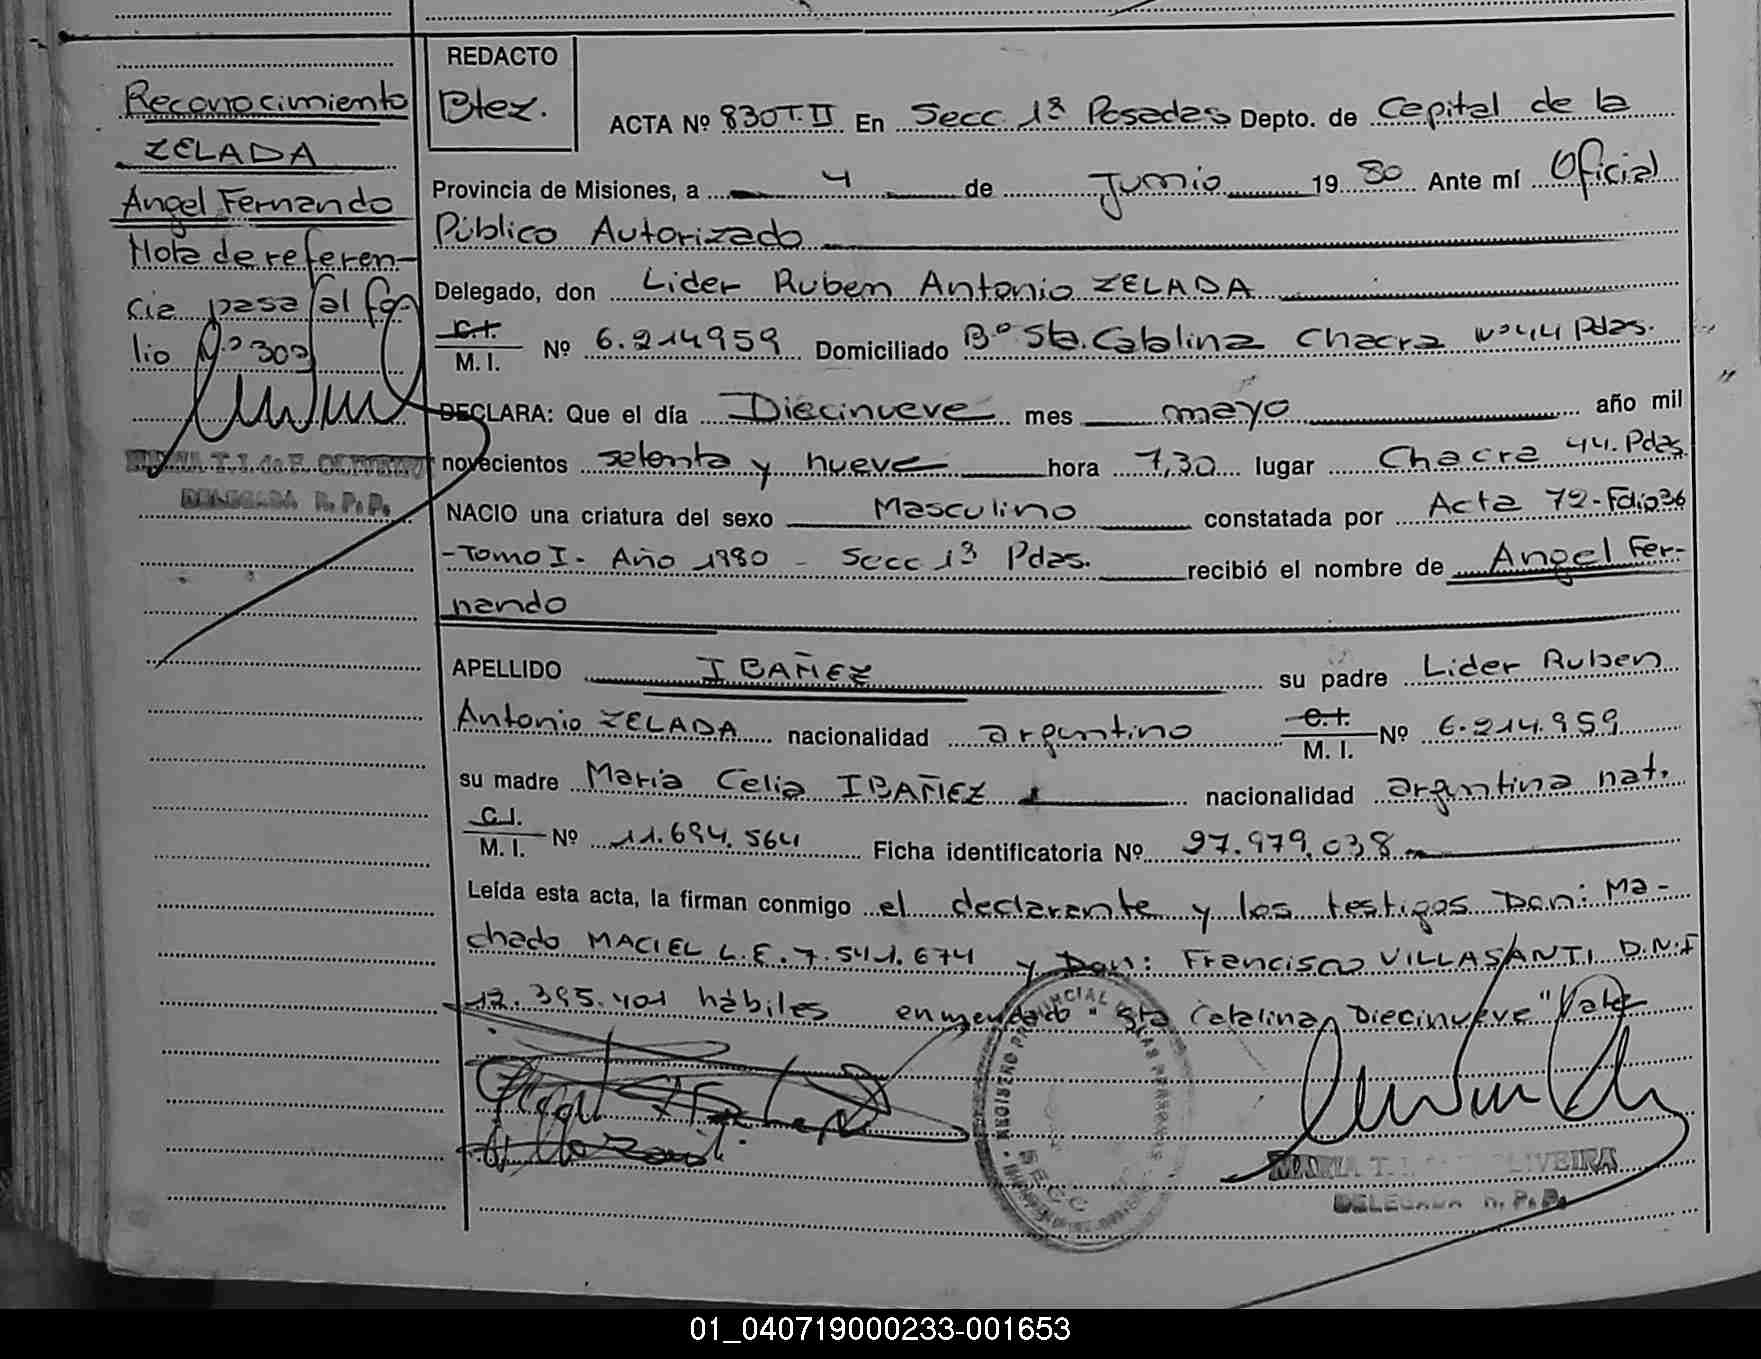 Reconocimiento
ZELADA
Angel Fernando
Nota de referen-
cia pasa al fo-
lio Nº 300
DELEGADA R.P.P.
REDACTO
Btez.
ACTA Nº 830T.II En Secc 1ª Posadas Depto. de Capital de la
Provincia de Misiones, a 4 de Junio 19 80 Ante mí Oficial
Público Autorizado
Delegado, don Lider Ruben Antonio ZELADA
C.I.
M. I. Nº 6.214959 Domiciliado Bº Sta. Catalina Chacra Nº44 Pdas.
DECLARA: Que el día Diecinueve mes mayo año mil
novecientos setenta y nueve hora 7,30 lugar Chacra 44. Pdas.
NACIO una criatura del sexo Masculino constatada por Acta 72-Folio36
-Tomo I- Año 1980 - Secc 1ª Pdas. recibió el nombre de Angel Fer-
nando
APELLIDO IBAÑEZ su padre Lider Ruben
Antonio ZELADA nacionalidad argentino C.I.
M. I. Nº 6.214.959
su madre Maria Celia IBAÑEZ nacionalidad argentina nat.
C.I.
M. I. Nº 11.694.564 Ficha identificatoria Nº 97.979.038
Leída esta acta, la firman conmigo el declarante y los testigos Don: Ma-
chado MACIEL L.E. 7.541.674 y Don: Francisco VILLASANTI D.N.I
12.395.401 hábiles enmendado "Sta Catalina, Diecinueve" Vale
REGISTRO PROVINCIAL DE LAS PERSONAS
SECC
MARIA T. OLIVEIRA
DELEGADA R.P.P.
01_040719000233-001653